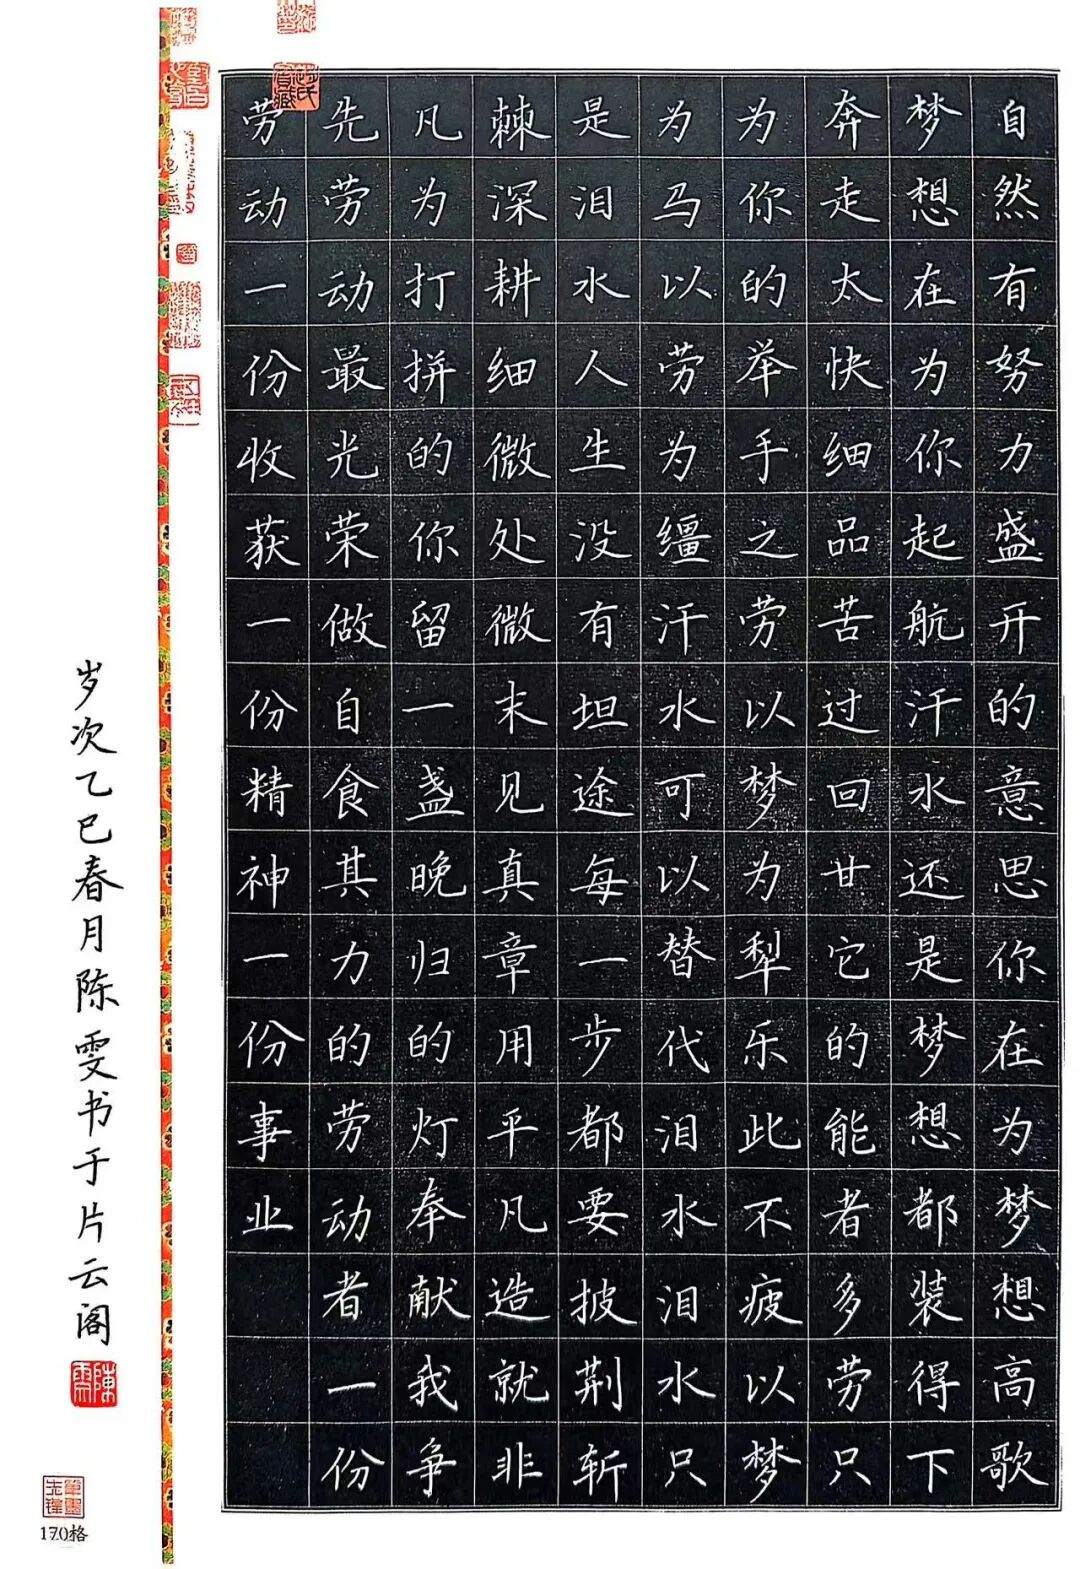 自然有努力盛开的意思你在为梦想高歌
梦想在为你起航汗水还是梦想都装得下
奔走太快细品苦过回甘它的能者多劳只
为你的举手之劳以梦为犁乐此不疲以梦
为马以劳为缰汗水可以替代泪水泪水只
是泪水人生没有坦途每一步都要披荆斩
棘深耕细微处微末见真章用平凡造就非
凡为打拼的你留一盏晚归的灯奉献我争
先劳动最光荣做自食其力的劳动者一份
劳动一份收获一份精神一份事业
岁次乙巳春月陈雯书于片云阁
陳雯
170格